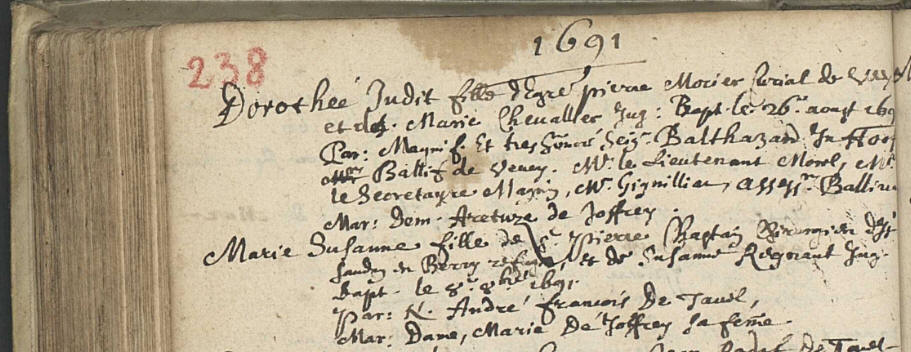 1691
238
Dorotheé Judit fille d'Egré pierre Morier Curial de
et de d. Marie Chevallier Jug: Bapt. le 26.e aoust 169
Par: Magnif. Et tres honoré Seigr. Balthazard Im Hoof
Ballif de Vevey. Mr. le Lieutenant Morel, Mr.
le Secretayre Magnin, Mr. Gignillian, assessr. Balliva
Mar: Dem. Aretuze de Joffrey.
Marie Susanne fille de Sr. Pierre Baptiste
en Berry refugié, et de Susanne Jug.
Bapt. le 8.e 8bre 1691.
Par: N. André françois De Tavel,
Mar: Dame, Marie De Joffrey sa feme.
De Tavel